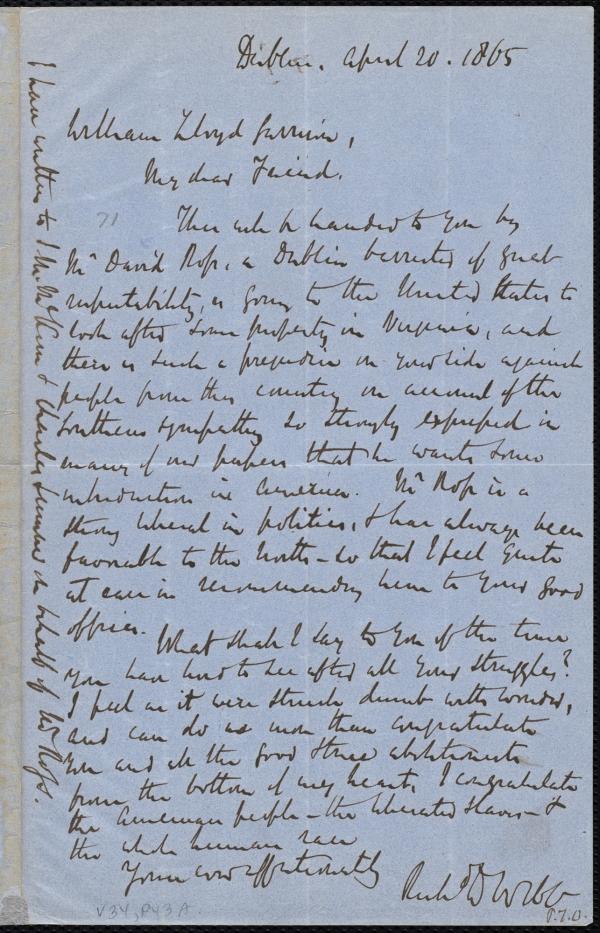 Dublin. April 20. 1865
William Lloyd Garrison,
My dear Friend.
71
This will be handed to you by
Mr David Ross, a Dublin barrister of great
respectability, is going to the United States to
look after some property in Virginia, and
there is such a prejudice on your side against
people from this country on account of the
Southern sympathy so strongly expressed in
many of our papers that he wants some
introduction in America. Mr Ross is a
strong liberal in politics, & has always been
favorable to the North – so that I feel quite
at ease in recommending him to your good
offices.
What shall I say to you of the times
you have lived to see after all your struggles?
I feel as it were struck dumb with wonder,
and can do no more than congratulate
you and all the good & true abolitionists
from the bottom of my heart. I congratulate
the American people – the liberated slaves – &
the whole human race
Yours ever affectionately
Richd D Webb
P.T.O.
V34, P43A
I have written to J. M. McKim & Charles Sumner on behalf of Mr Ross.